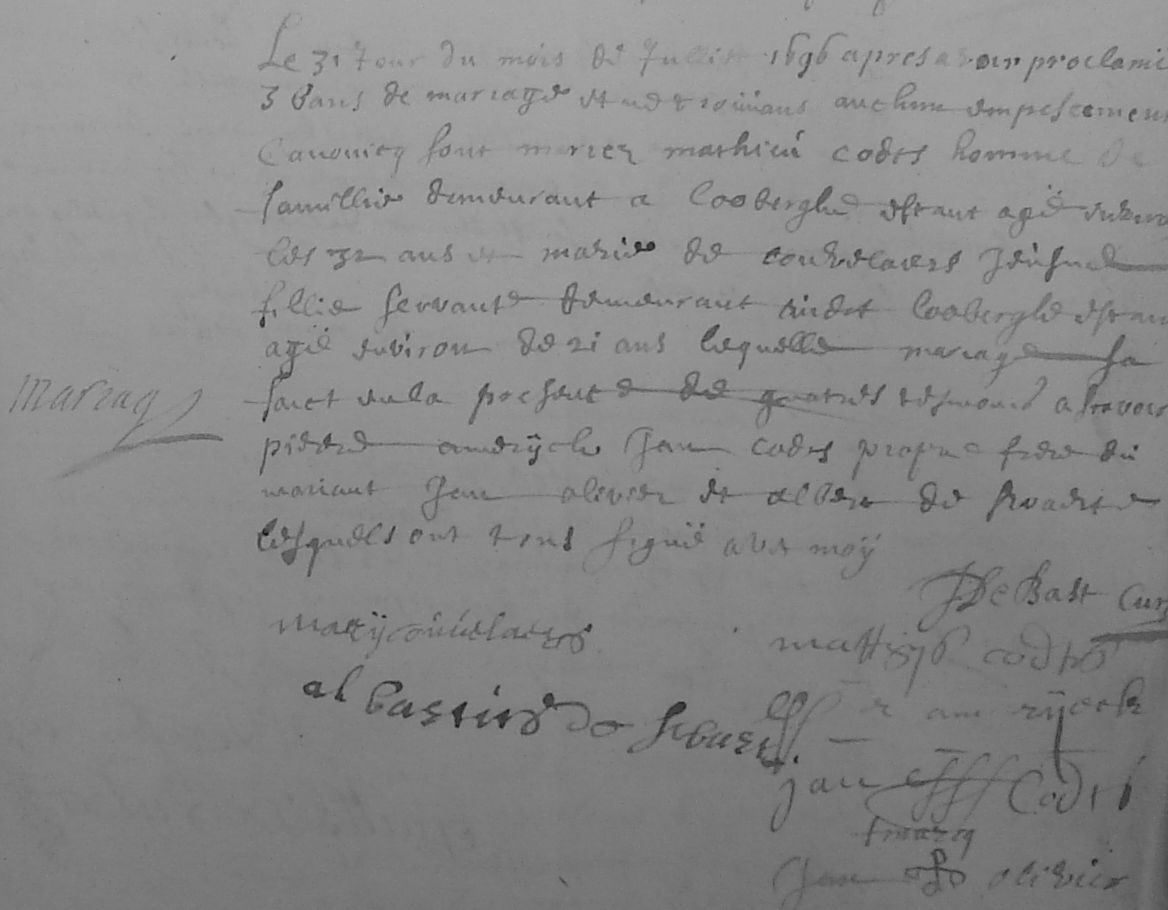 Le 31 Jour du mois de Juillit 1696 apres avoir proclamé
3 bans de mariage et ne trouvans auchun empescement
Canonicq sont mariez mathieu codts homme de
famillie demeurant a looberghe estant agé environ
les 32 ans et marie de couvelaers Jeusne
fillie servante demeurant audit looberghe estan
agé environ de 21 ans lequelle mariage sa
faict en la presente de quatres tesmoins a scavoir
pierre amerijck Jan codts propre frere du
mariant Jan olivier et alber de swaerte
lesquels ont tous signé avec moÿ
Mariag
DeBast Cur
marÿ couvelaers
mattijs codts
albastius de swaert
am rijck
jan Codts
marcq
Jan olivier